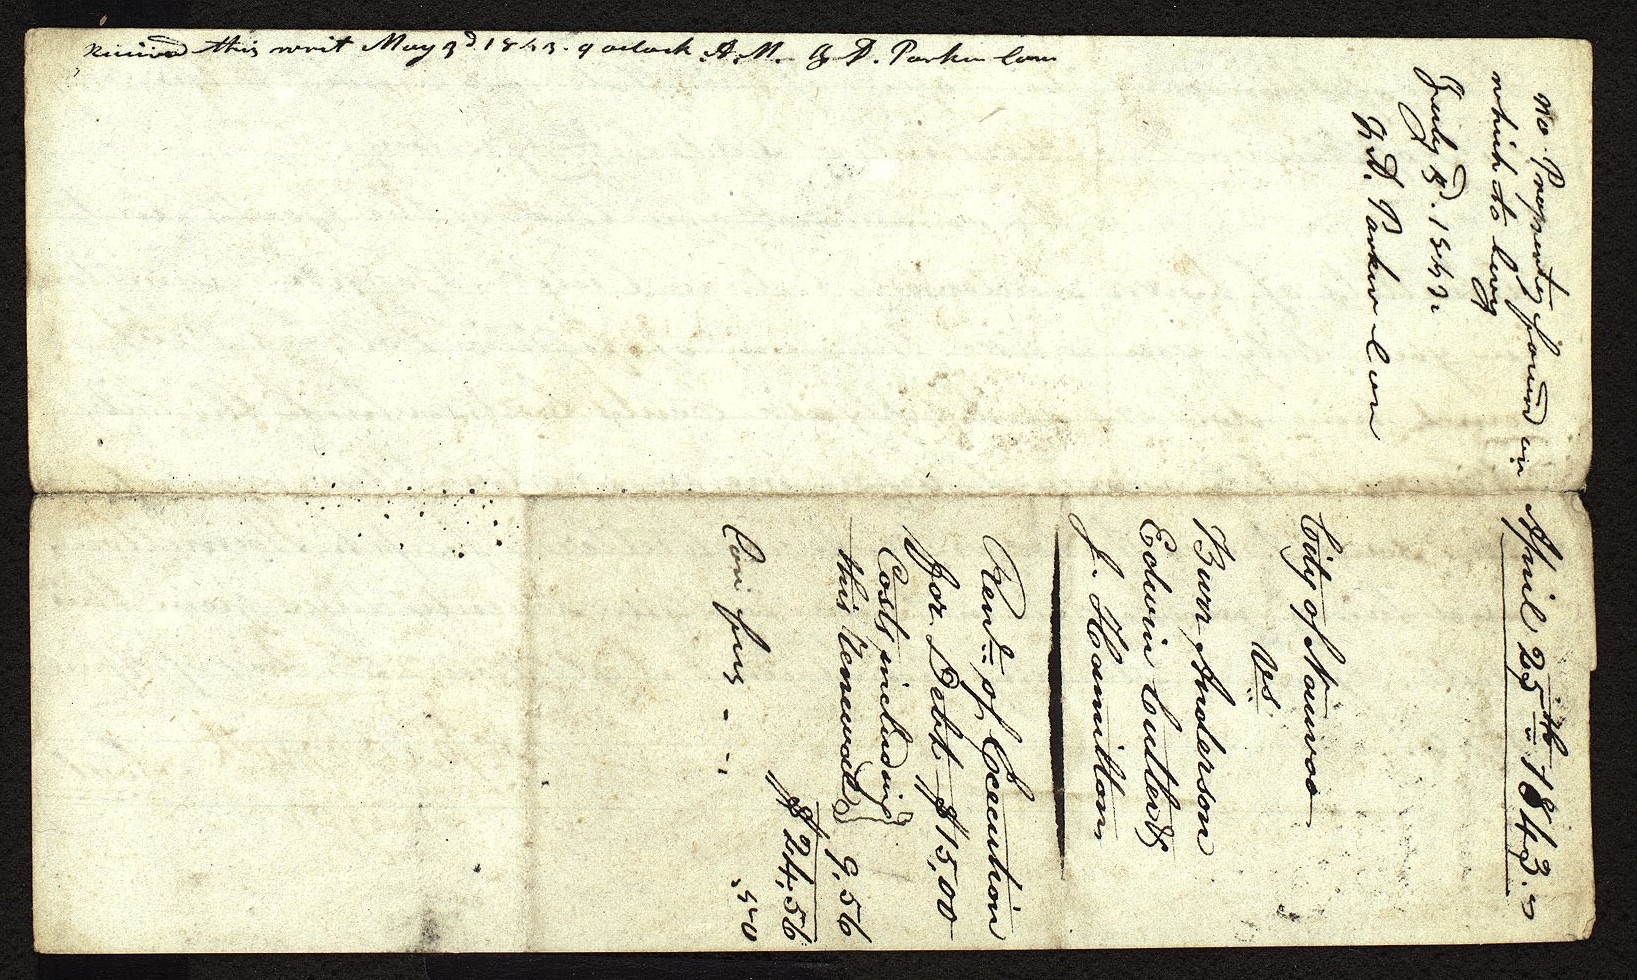 Received this writ May 3d 1843. 9 oclock A.M. H. D. Parker Con
no Property found on
which to levy
July 3d. 1843
H. D. Parker Con
April 25th 1843.
City of Nauvoo
vs
Burr Anderson
Edwin Cutler &
J. Hamilton
Renl. of Execution
For Debt $15,00
Costs, including }
this Renewal } 9,56
$24,56
Con fees - - .50